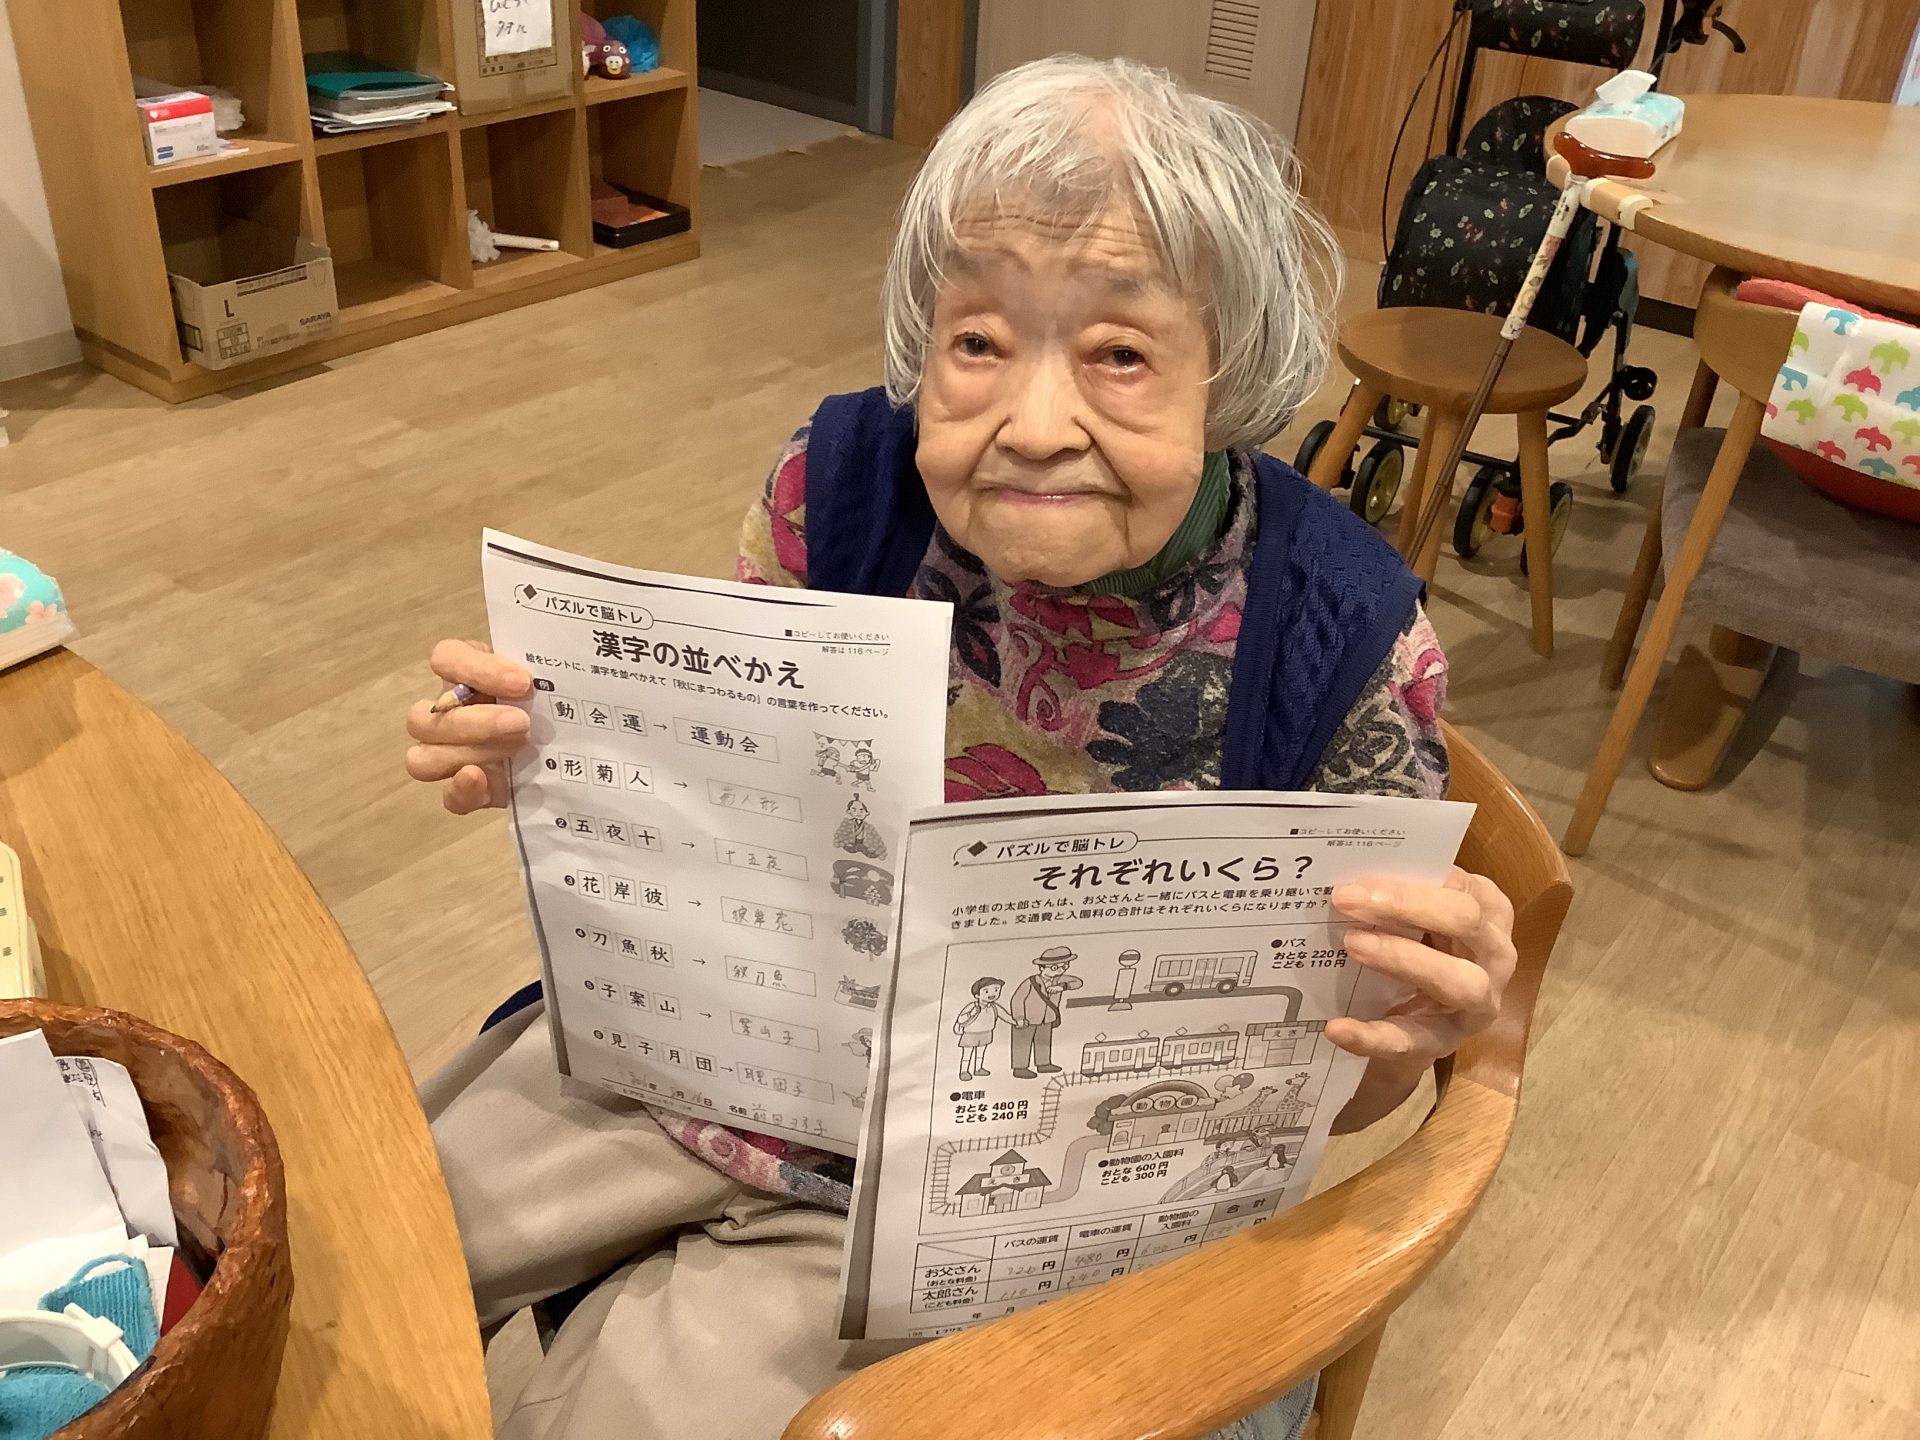 パズルで脳トレ
■コピーしてお使いください
解答は116ページ
漢字の並べかえ
絵をヒントに、漢字を並べかえて「秋にまつわるもの」の言葉を作ってください。
例
動 会 運 → 運動会
❶ 形 菊 人 → 菊人形
❷ 五 夜 十 → 十五夜
❸ 花 岸 彼 → 彼岸花
❹ 刀 魚 秋 → 秋刀魚
❺ 子 案 山 → 案山子
❻ 見 子 月 団 →
年 月 16日 名前
パズルで脳トレ
■コピーしてお使いください
解答は116ページ
それぞれいくら？
小学生の太郎さんは、お父さんと一緒にバスと電車を乗り継いで動
きました。交通費と入園料の合計はそれぞれいくらになりますか？
●バス
おとな 220円
こども 110円
えき
●電車
おとな 480円
こども 240円
動物園
●動物園の入園料
おとな 600円
こども 300円
えき
バスの運賃 電車の運賃 動物園の入園料 合計
お父さん (おとな料金) 220円 480円 600円 円
太郎さん (こども料金) 110円 240円
年 月
L
SARAYA